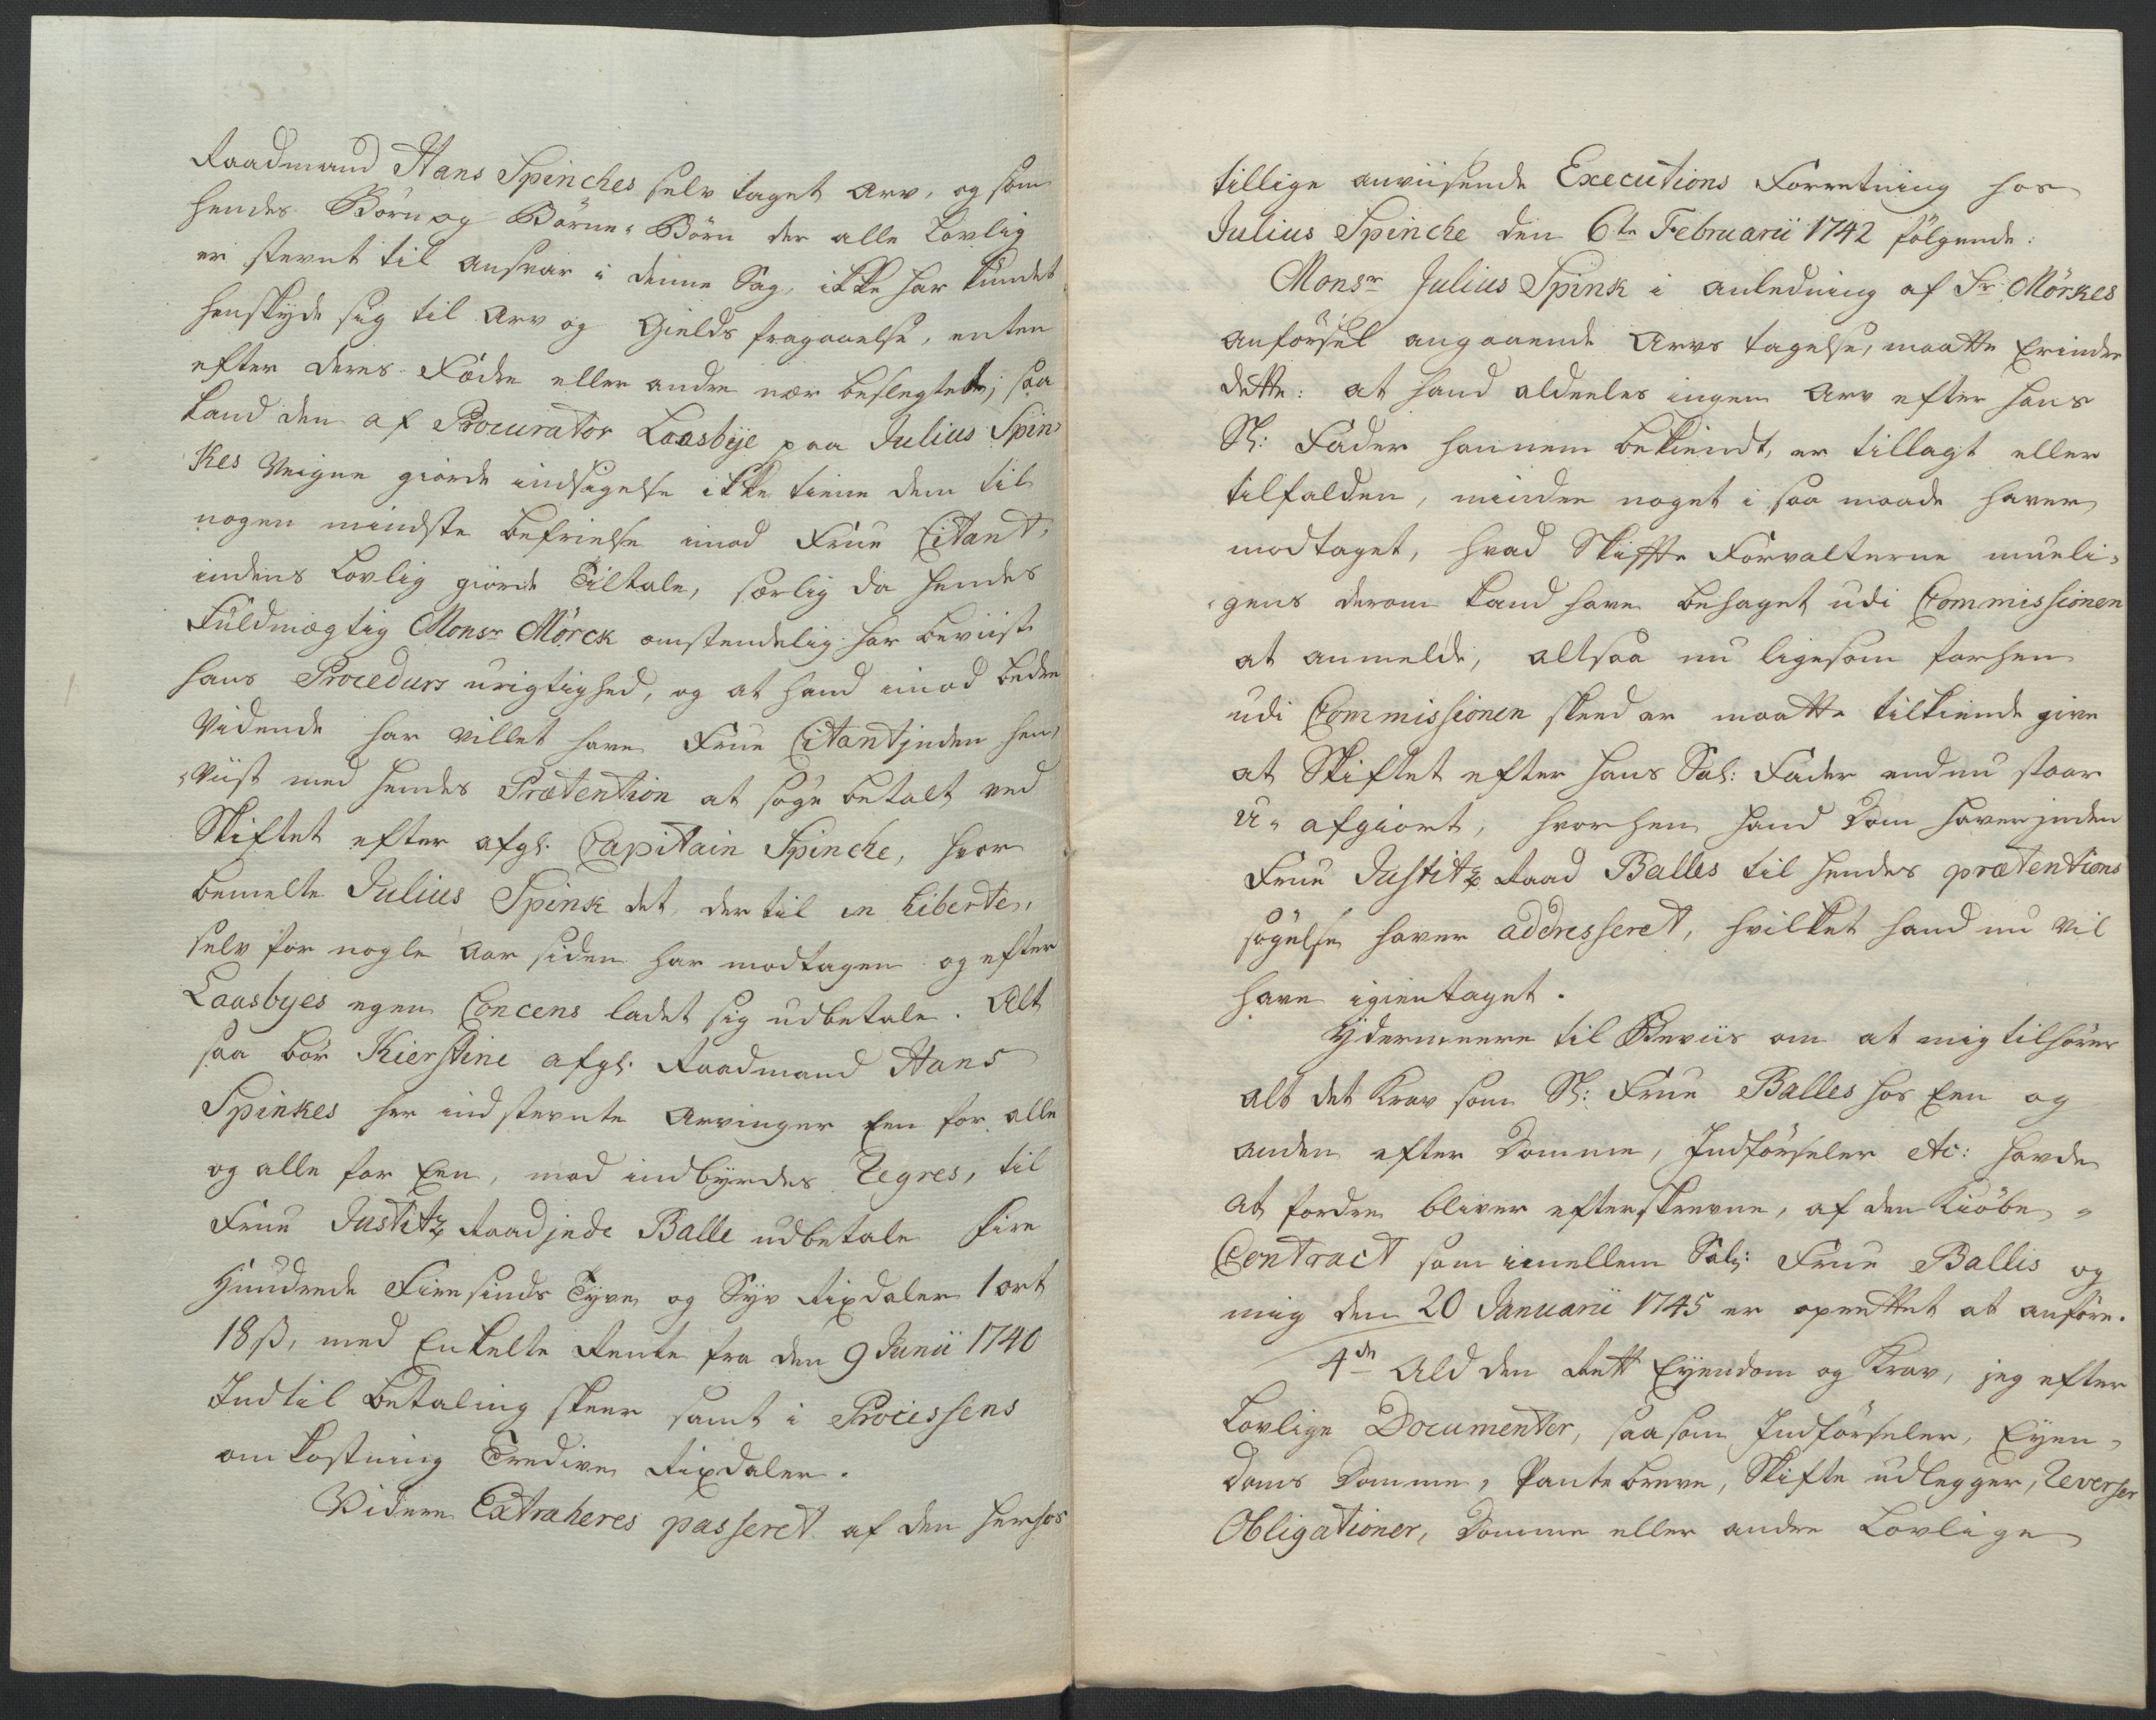 Raadmand Hans Spinches selv taget Arv, og som
hendes Børn og Børne-Børn der alle Lovlig
er stevnt til ansvar i denne Sag, ikke har kundet
henskyde sig til Arv og Gields fragaaelse, enten
efter deres Fædre eller andre nær beslegtede, saa
kand den af Procurator Laasbÿe paa Julius Spin-
kes Veigne giorde indsigelse ikke tiene dem til
nogen mindste befrielse imod Frue Citant-
indens Lovlig giorde Tiltale, særlig da hendes
Fuldmægtig Monsr Mörck omstendelig har beviist
hans Procedurs urigtighed, og at hand imod bedre
Vidende har villet have Frue Citantinden hen-
-viist med hendes Prætention at søge betalt ved
Skiftet efter afgl. Capitain Spincke, hvor
bemelte Julius Spink det, der til en Liberte,
selv for nogle Aar siden har modtagen og efter
Laasbyes egen Concens ladet sig udbetale. Alt
saa bør Kierstine afgl. Raadmand Hans
Spinkes her indstevnte Arvinger Een for alle
og alle for Een, med indbyrdes Regres, til
Frue Justitz Raadinde Balle udbetale Fire
Hundrede Firesinds Tyve og Syv Rixdaler 1 ort
18 ß, med Enkelte Rente fra den 9 Junii 1740
Indtil betaling skeer samt i Processens
omkostning Tredive Rixdaler.
Videre Extraheres passeret af den herhos
tillige anviisende Executions Forretning hos
Julius Spincke den 6te Februarii 1742 følgende:
Monsr Julius Spink i anledning af Sr Mörkes
anførsel angaaende Arvs tagelse, maatte Erindre
dette: at hand aldeeles ingen Arv efter hans
Sl: Fader hannem bekiendt, er tillagt eller
tilfalden, mindre noget i saa maade haver
modtaget, hvad Skiffte Forvalterne mueli-
-gens derom kand have behaget udi Commissionen
at anmelde, altsaa nu ligesom forhen
udi Commissionen skeed er maatte tilkiende give
at Skiftet efter hans Sal: Fader endnu staar
u-afgiort, hvorhen hand Dom haverinden
Frue Justitz Raad Balles til hendes prætentions
søgelse haver addresseret, hvilket hand nu vil
have igientaget.
Ydermeere til Beviis om at mig tilhører
alt det Krav som Sl: Frue Balles hos Een og
anden efter Domme, Indførseler etc: havde
at fordre bliver efterskrevne, af den Kiøbe-
Contract som imellem Sal: Frue Ballis og
mig den 20 Januarii 1745 er oprettet at anføre.
4de Ald den Rett Eyendom og Krav, jeg efter
Lovlige Documenter, saasom Indførseler, Eyen-
doms Domme, Pantebreve, Skifte udlegger, Reverser
Obligationer, Domme eller andre Lovlige